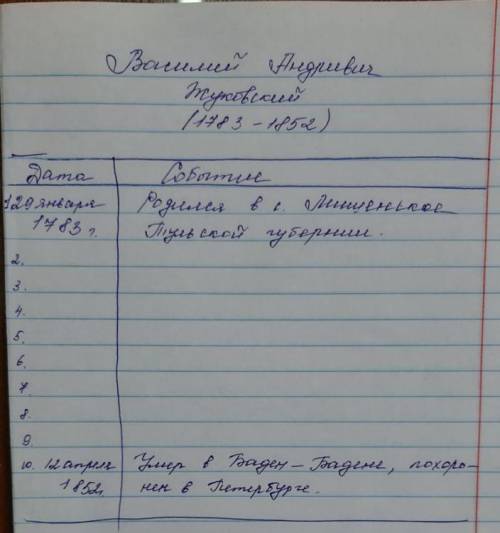 Василий Андривич
Жуковский
(1783-1852)
Дата Событие
1. 29 января Родился в с. Мишенское
1783 г. Тульской губернии.
2.
3.
4.
5.
6.
7.
8.
9.
10. 12 апреля Умер в Баден-Бадене, похоро-
1852г. нен в Петербурге.